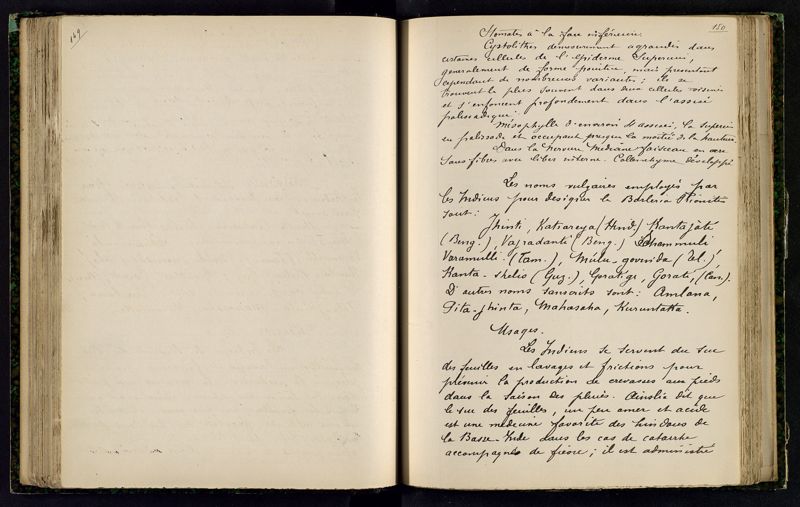 149
150
Stomates à la face inférieure.
Cystolithes démesurement agrandis dans
certaines cellules de l'épiderme Superieur,
generalement de forme pointue, mais presentant
cependant de nombreuses variantes; ils se
trouvent le plus souvent dans deux cellules voisines
et s'enfoncent profondement dans l'assise
palissadique.
Mésophylle d'environ 4 assises, la superieure
en palissade et occupant presque la moitié de la hauteur
Dans la Nervure Mediane faisceau en arc
Sans fibres avec liber interne. Collenchyme développé.
Les noms vulgaires employés par
les Indiens pour designer la Barleria Prionitis
sont:
Jhinti, Katsareya (Hind.) Kantajáti
(Beng.), Vajradanti (Beng.) Dhammuli
Varamulli (Tam.), Mulu-govinda (Tel.),
Kanta-shelio (Guz.), Goratige, Gorati, (Can.).
D'autres noms sanscrits sont: Amlana,
Pita-jhinta, Mahasaha, Kuruntaka.
Usages.
Les Indiens se servent du suc
des feuilles en lavages et frictions pour
prévenir la production de crevasses aux pieds
dans la saison des pluies. Ainslie dit que
le suc des feuilles, un peu amer et acide
est une médecine favorite des hindous de
la Basse-Inde dans les cas de catarrhe
accompagnés de fièvre; il est administré